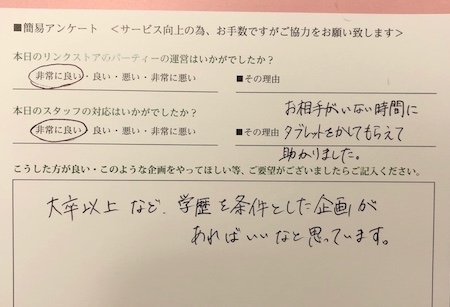 ■簡易アンケート ＜サービス向上の為、お手数ですがご協力をお願い致します＞
本日のリンクストアのパーティーの運営はいかがでしたか？
非常に良い・良い・悪い・非常に悪い ■その理由
本日のスタッフの対応はいかがでしたか？
お相手がいない時間に
非常に良い・良い・悪い・非常に悪い ■その理由 タブレットをかしてもらえて
助かりました。
こうした方が良い・このような企画をやってほしい等、ご要望がございましたらご記入ください。
大卒以上など、学歴を条件とした企画が
あればいいなと思っています。